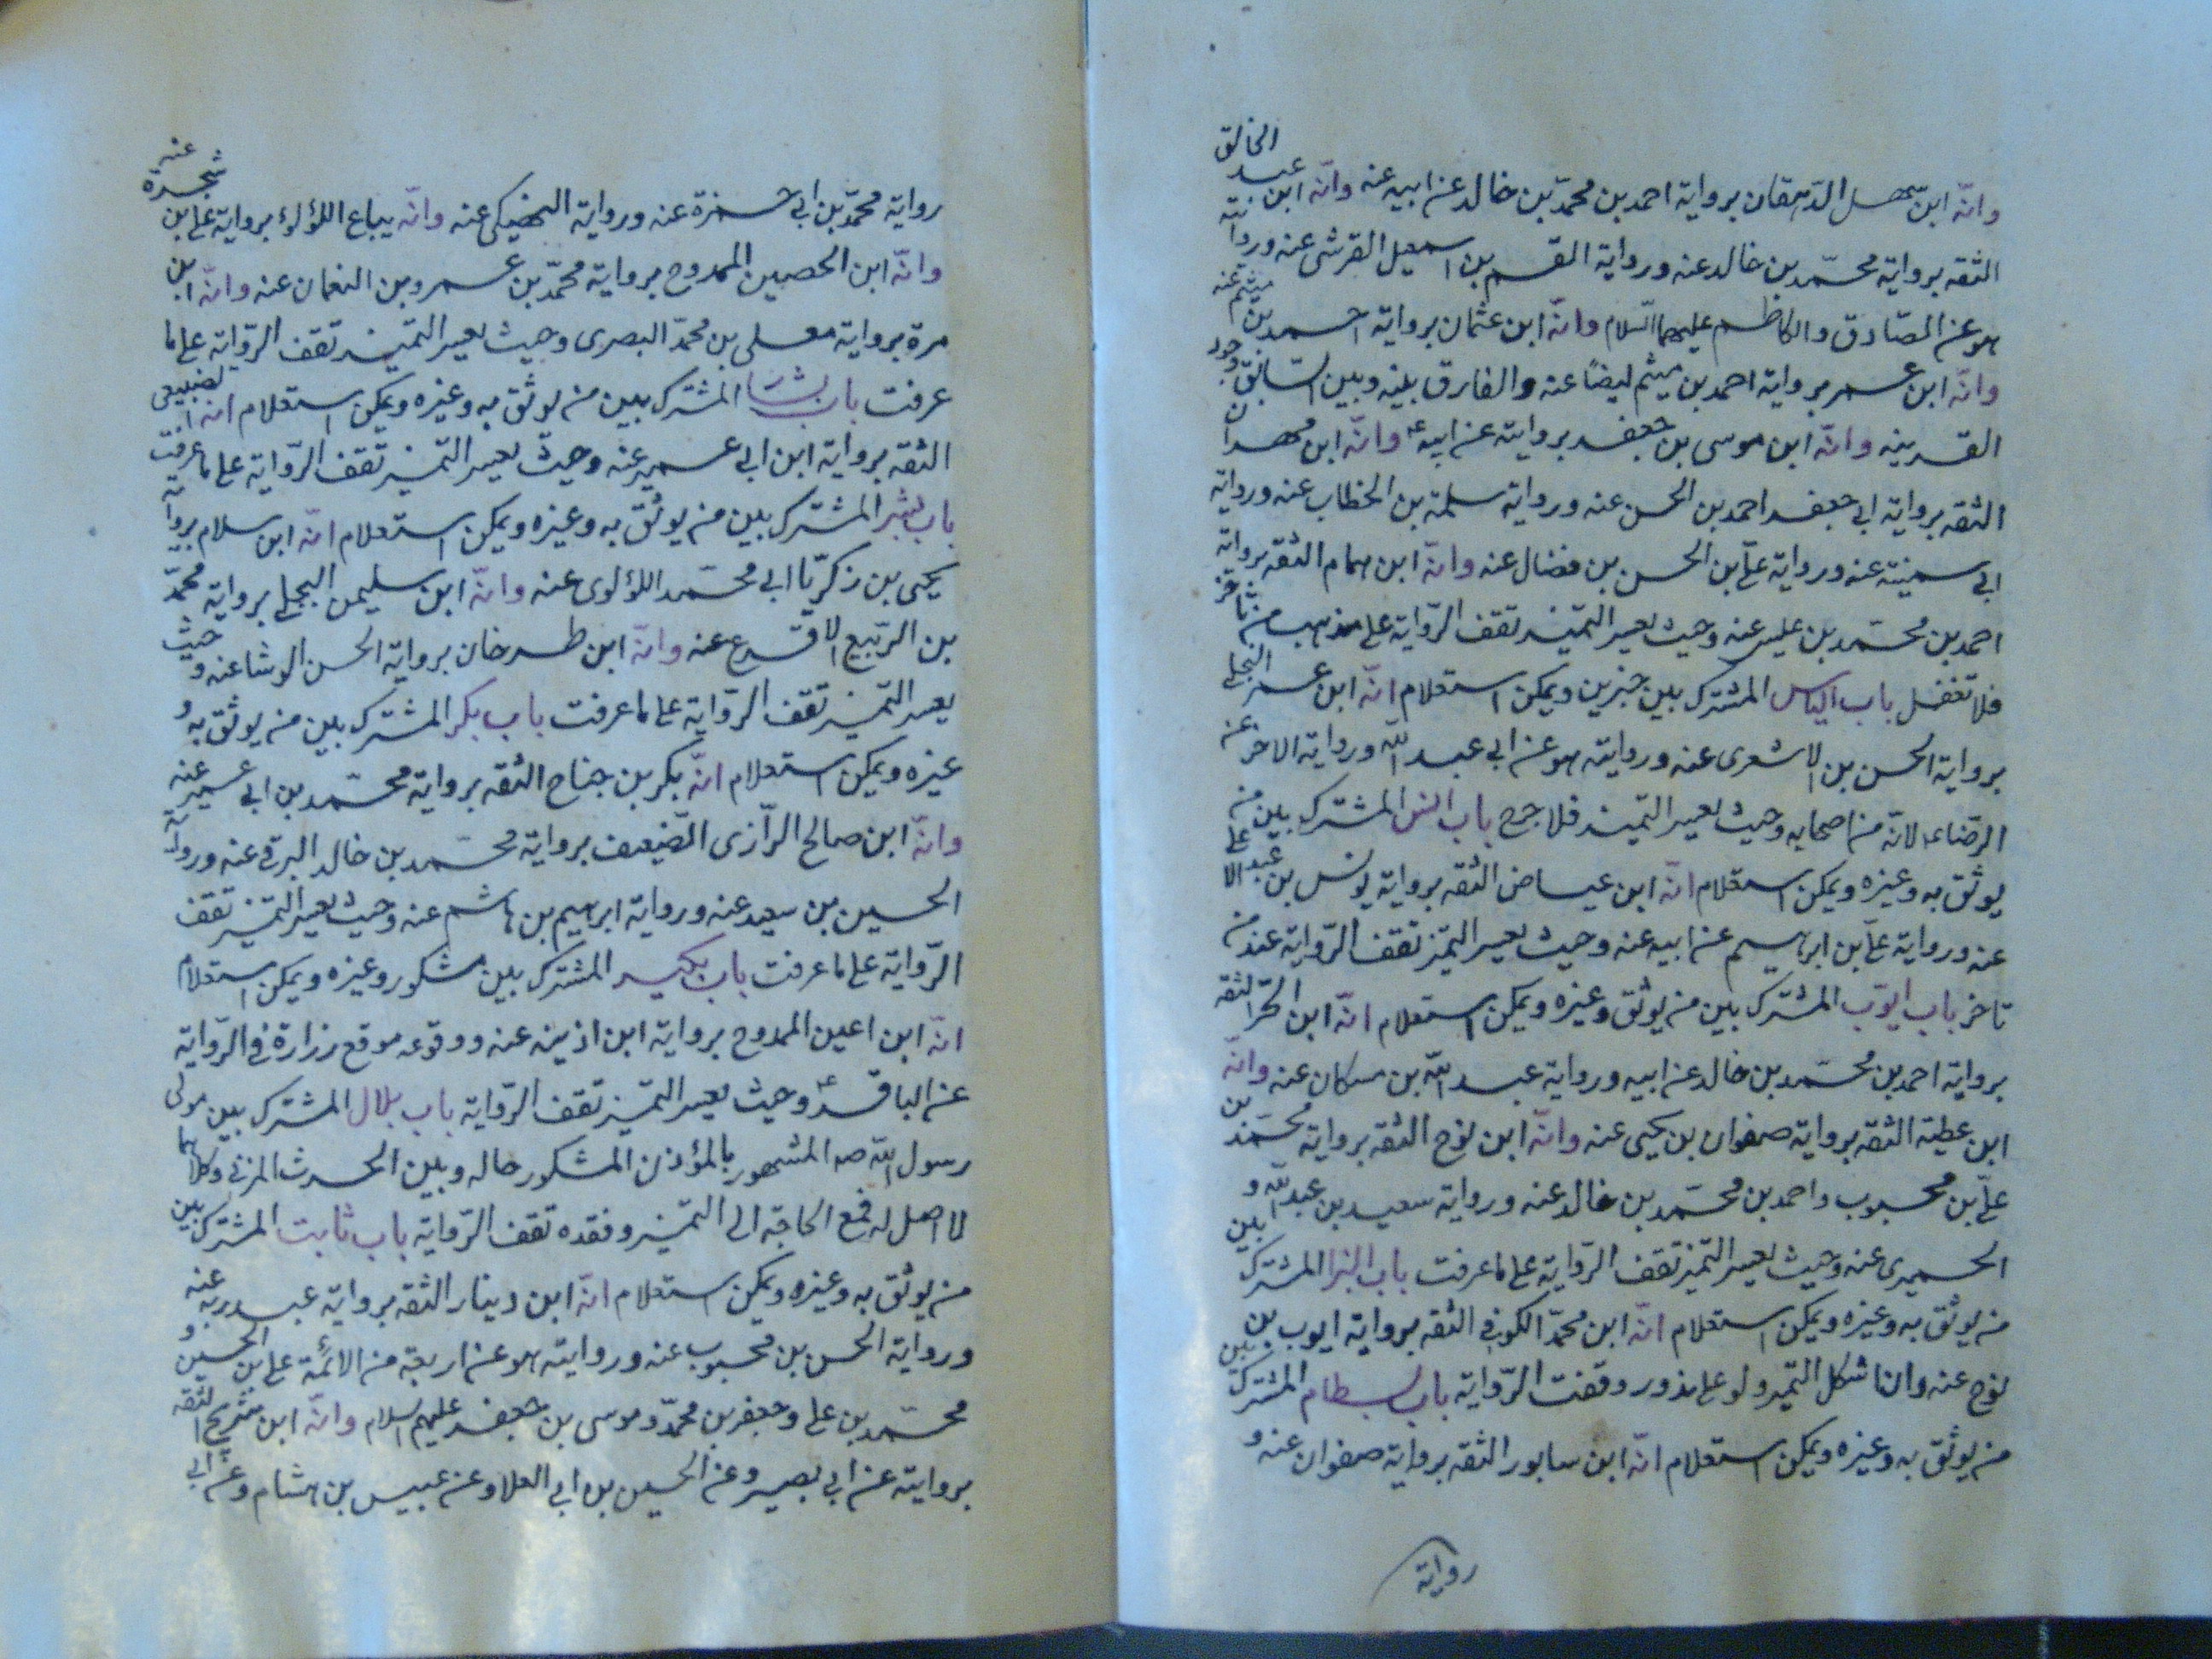 وانّه ابن سهل الدّهقان برواية احمد بن محمّد بن خالد عن ابيه عنه وانّه ابن عبد الخالق
الثقه برواية محمّد بن خالد عنه ورواية القسم بن اسمعيل القرشى عنه وروايته
هو عن الصّادق والكاظم عليهما السّلام وانّه ابن عثمان برواية احمد بن ميثم عنه
وانّه ابن عمر برواية احمد بن ميثم ايضًا عنه والفارق بينه وبين السّابق وجود
القرينه وانّه ابن موسى بن جعفر بروايته عن ابيه ع وانّه ابن مهران
الثقه برواية ابى جعفر احمد بن الحسن عنه ورواية سلمة بن الخطاب عنه ورواية
ابى سمينة عنه ورواية علىّ بن الحسن بن فضال عنه وانّه ابن همام الثقه برواية
احمد بن محمّد بن عيسى عنه وحيث يعسر التميز تقف الرّواية على مذهب من تاخر
فلا تغفل باب الياس المشترك بين خبرين ويمكن استعلام انّه ابن عمر البجلى
برواية الحسن بن الاشعرى عنه وروايته هو عن ابى عبد الله ورواية الاخر عن
الرضا ع لانّه من اصحابه وحيث يعسر التميز فلا حرج باب انس المشترك بين من
يوثق به وغيره ويمكن استعلام انّه ابن عياض الثقه برواية يونس بن عبد الاعلى
عنه ورواية علىّ بن ابرهيم عن ابيه عنه وحيث يعسر التميز تقف الرّواية عند من
تاخر باب ايوّب المشترك بين من يوثق وغيره ويمكن استعلام انّه ابن الحرّ الثقه
برواية احمد بن محمّد بن خالد عن ابيه ورواية عبد الله بن مسكان عنه وانّه
ابن عطية الثقه برواية صفوان بن يحيى عنه وانّه ابن نوح الثقه برواية محمّد بن
علىّ بن محبوب واحمد بن محمّد بن خالد عنه ورواية سعيد بن عبد الله و
الحميرى عنه وحيث يعسر التميز تقف الرّواية على ما عرفت باب البرا المشترك بين
من يوثق به وغيره ويمكن استعلام انّه ابن محمّد الكوفى الثقه برواية ايوب بن
نوح عنه واذا شكل التميز ولو على ندور وقفت الرّواية باب بسطام المشترك بين
من يوثق به وغيره ويمكن استعلام انّه ابن سابور الثقه برواية صفوان عنه و
رواية
رواية محمّد بن ابى حمزة عنه ورواية النهيكى عنه وانّه بياع اللؤلوء برواية على بن شجره عنه
وانّه ابن الحصين الممدوح برواية محمّد بن عمرو بن النعمان عنه وانّه ابن
مرة برواية معلى بن محمّد البصرى وحيث يعسر التميز تقف الرّواية على ما
عرفت باب بشار المشترك بين من يوثق به وغيره ويمكن استعلام انه الضبيعى
الثقه برواية ابن ابى عمير عنه وحيث يعسر التميز تقف الرّواية على ما عرفت
باب بشر المشترك بين من يوثق به وغيره ويمكن استعلام انّه ابن سلام برواية
يحيى بن زكريّا ابى محمّد اللؤلوى عنه وانّه ابن سليمن البجلى برواية محمّد
بن الرّبيع الاقرع عنه وانّه ابن طرخان برواية الحسن الوشا عنه وحيث
يعسر التميز تقف الرّواية على ما عرفت باب بكر المشترك بين من يوثق به و
غيره ويمكن استعلام انّه بكر بن جناح الثقه برواية محمّد بن ابى عمير عنه
وانّه ابن صالح الرّازى الضّعيف برواية محمّد بن خالد البرقى عنه ورواية
الحسين بن سعيد عنه ورواية ابرهيم بن هاشم عنه وحيث يعسر التميز تقف
الرّواية على ما عرفت باب بكير المشترك بين مشكور وغيره ويمكن استعلام
انّه ابن اعين الممدوح برواية ابن اذينه عنه ووقوعه موقع زرارة فى الرّواية
عن الباقر ع وحيث يعسر التميز تقف الرّواية باب بلال المشترك بين مولى
رسول الله صه المشهور بالمؤذن المشكور حاله وبين الحرث المزنى وكلاهما
لا اصل له فمع الحاجة الى التميز وفقده تقف الرّواية باب ثابت المشترك بين
من يوثق به وغيره ويمكن استعلام انّه ابن دينار الثقه برواية عبد ربه عنه
ورواية الحسن بن محبوب عنه وروايته هو عن اربعة من الائمّة على بن الحسين و
محمّد بن على وجعفر بن محمّد وموسى بن جعفر عليهم السلام وانّه ابن شريح الثقه
بروايته عن ابى بصير وعن الحسين بن ابى العلا وعن عبيس بن هشام وعن ابى